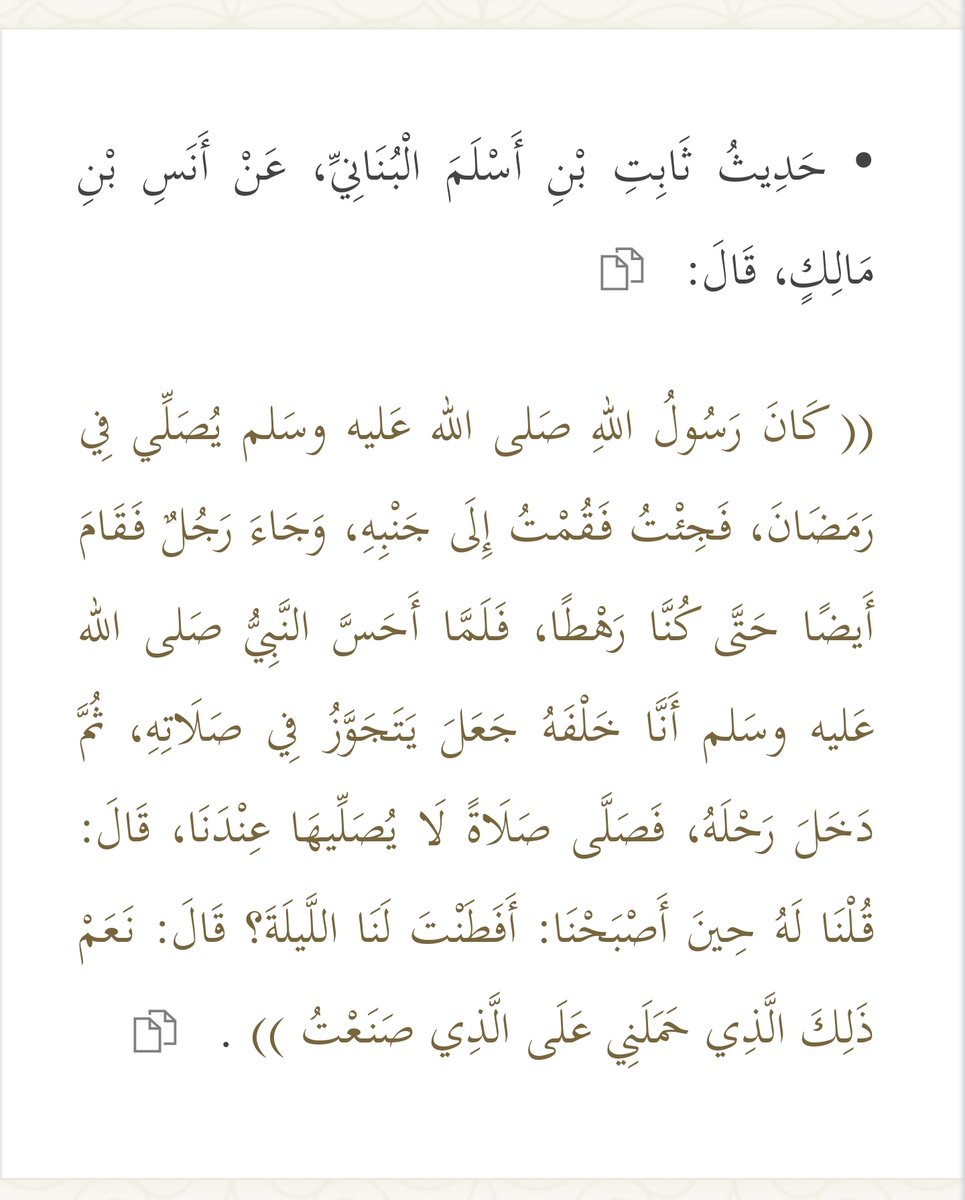 • حَدِيثُ ثَابِتِ بْنِ أَسْلَمَ الْبُنَانِيِّ، عَنْ أَنَسِ بْنِ
مَالِكٍ، قَالَ:
(( كَانَ رَسُولُ اللهِ صَلى الله عَليه وسَلم يُصَلِّي فِي
رَمَضَانَ، فَجِئْتُ فَقُمْتُ إِلَى جَنْبِهِ، وَجَاءَ رَجُلٌ فَقَامَ
أَيضًا حَتَّى كُنَّا رَهْطًا، فَلَمَّا أَحَسَّ النَّبِيُّ صَلى الله
عَليه وسَلم أَنَّا خَلْفَهُ جَعَلَ يَتَجَوَّزُ فِي صَلَاتِهِ، ثُمَّ
دَخَلَ رَحْلَهُ، فَصَلَّى صَلَاةً لَا يُصَلِّيهَا عِنْدَنَا، قَالَ:
قُلْنَا لَهُ حِينَ أَصْبَحْنَا: أَفَطَنْتَ لَنَا اللَّيلَةَ؟ قَالَ: نَعَمْ
ذَلِكَ الَّذِي حَمَلَنِي عَلَى الَّذِي صَنَعْتُ )) .